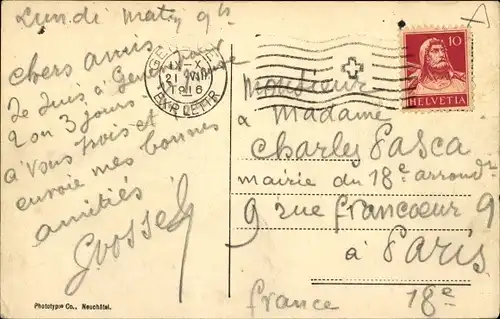 Lundi matin 9h
Chers amis
Je suis à Genève
2 ou 3 jours
à vous trois et
envoie mes bonnes
amitiés
IX-X
21 VIII
EXP. LETTR.
10
HELVETIA
Monsieur
à Madame
Charley Pasca
mairie du 18e arrondt
9 rue francoeur 9
à Paris
18e
france
Phototypie Co., Neuchâtel.